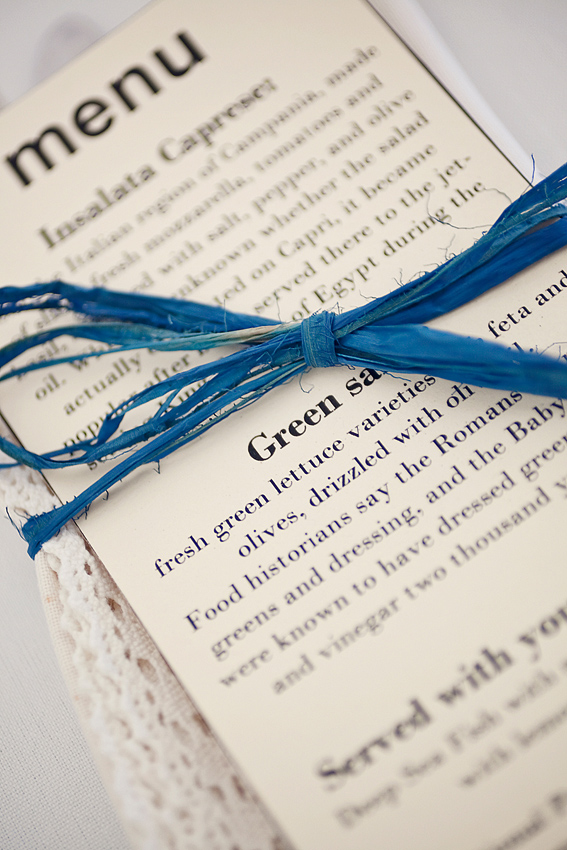 menu
Insalata Capreset
Italian region of Campania, made
fresh mozzarella, tomatoes and
with salt, pepper, and olive
unknown whether the salad
on Capri, it became
served there to the jet-
of Egypt during the
oil.
actually
after
feta and
Green
fresh green lettuce varieties
olives, drizzled with
Food historians say the Romans
greens and dressing, and the
were known to have dressed
and vinegar two thousand
Served with
Deep Sea Fish with
with